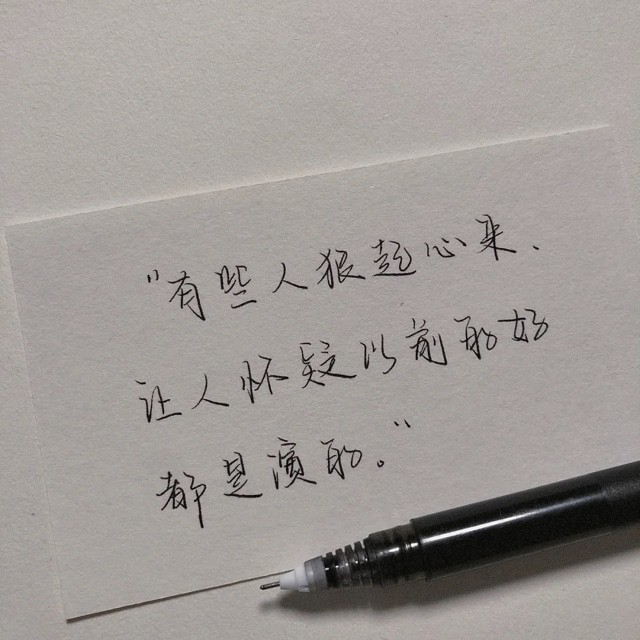 “有些人狠起心来、
让人怀疑以前的好
都是演的。”